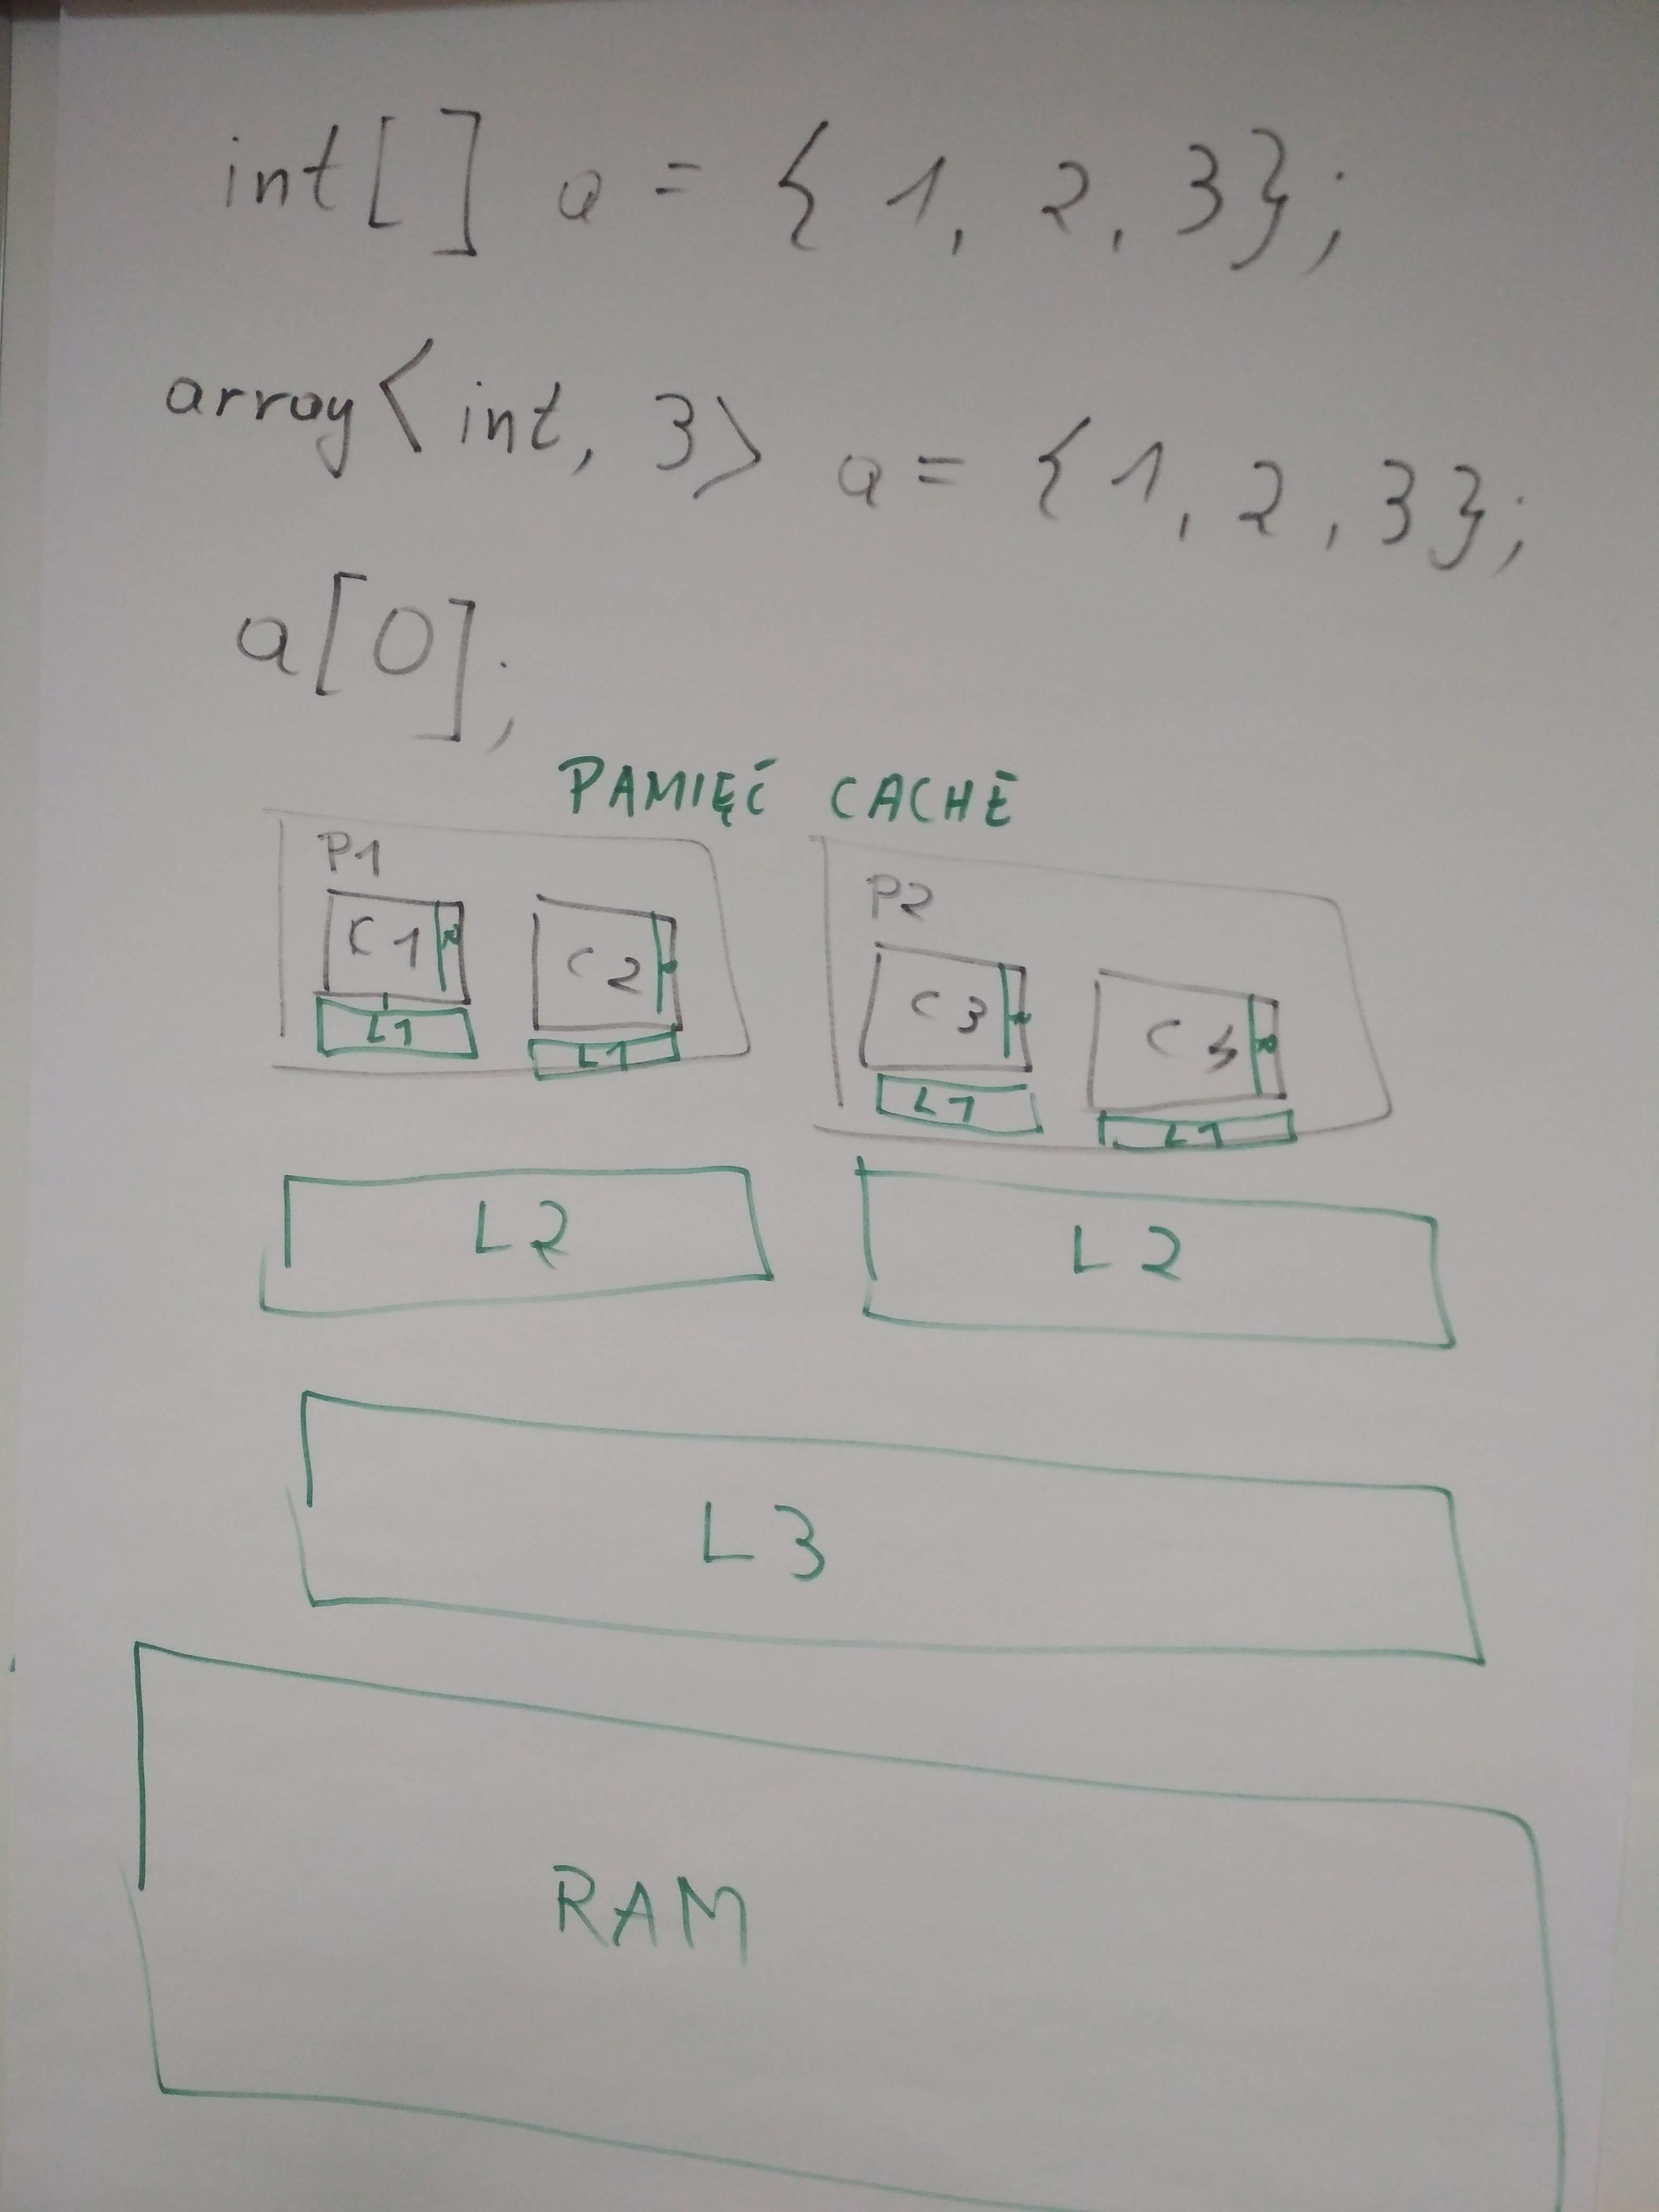 int[] a = { 1, 2, 3};
array<int, 3> a = { 1, 2, 3};
a[0];
PAMIĘĆ CACHE
P1
P2
C1
C2
C3
L1
L1
L1
L1
L2
L2
L3
RAM